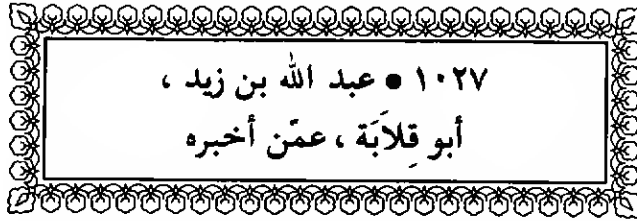 ١٠٢٧ • عبد الله بن زيد ،
أبو قِلاَبَة ، عمّن أخبره